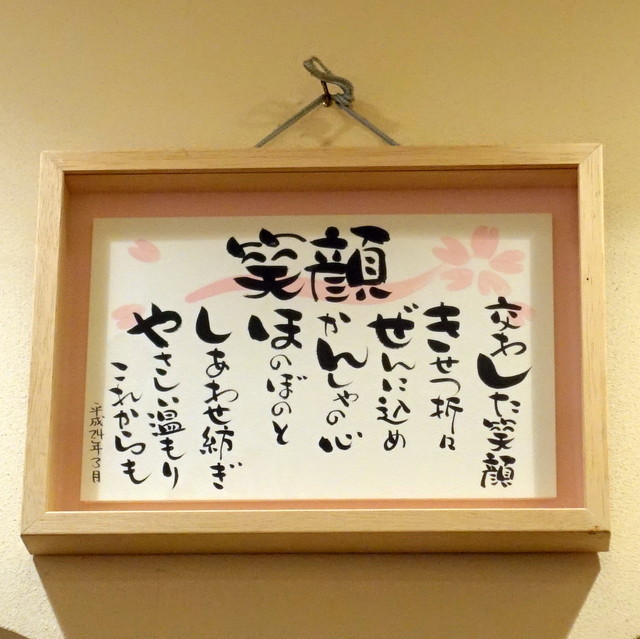 笑顔
交わした笑顔
きせつ折に
ぜんに込め
かんしゃの心
ほのぼのと
しあわせ紡ぎ
やさしい温もり
これからも
平成24年3月